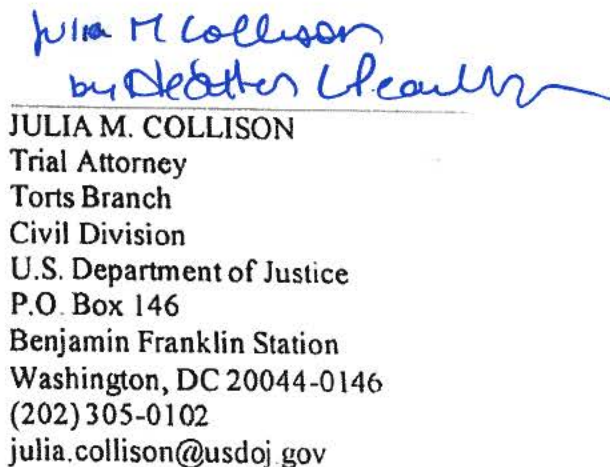 Julia M Collison
by Heather L
JULIA M. COLLISON
Trial Attorney
Torts Branch
Civil Division
U.S. Department of Justice
P.O. Box 146
Benjamin Franklin Station
Washington, DC 20044-0146
(202) 305-0102
julia.collison@usdoj.gov